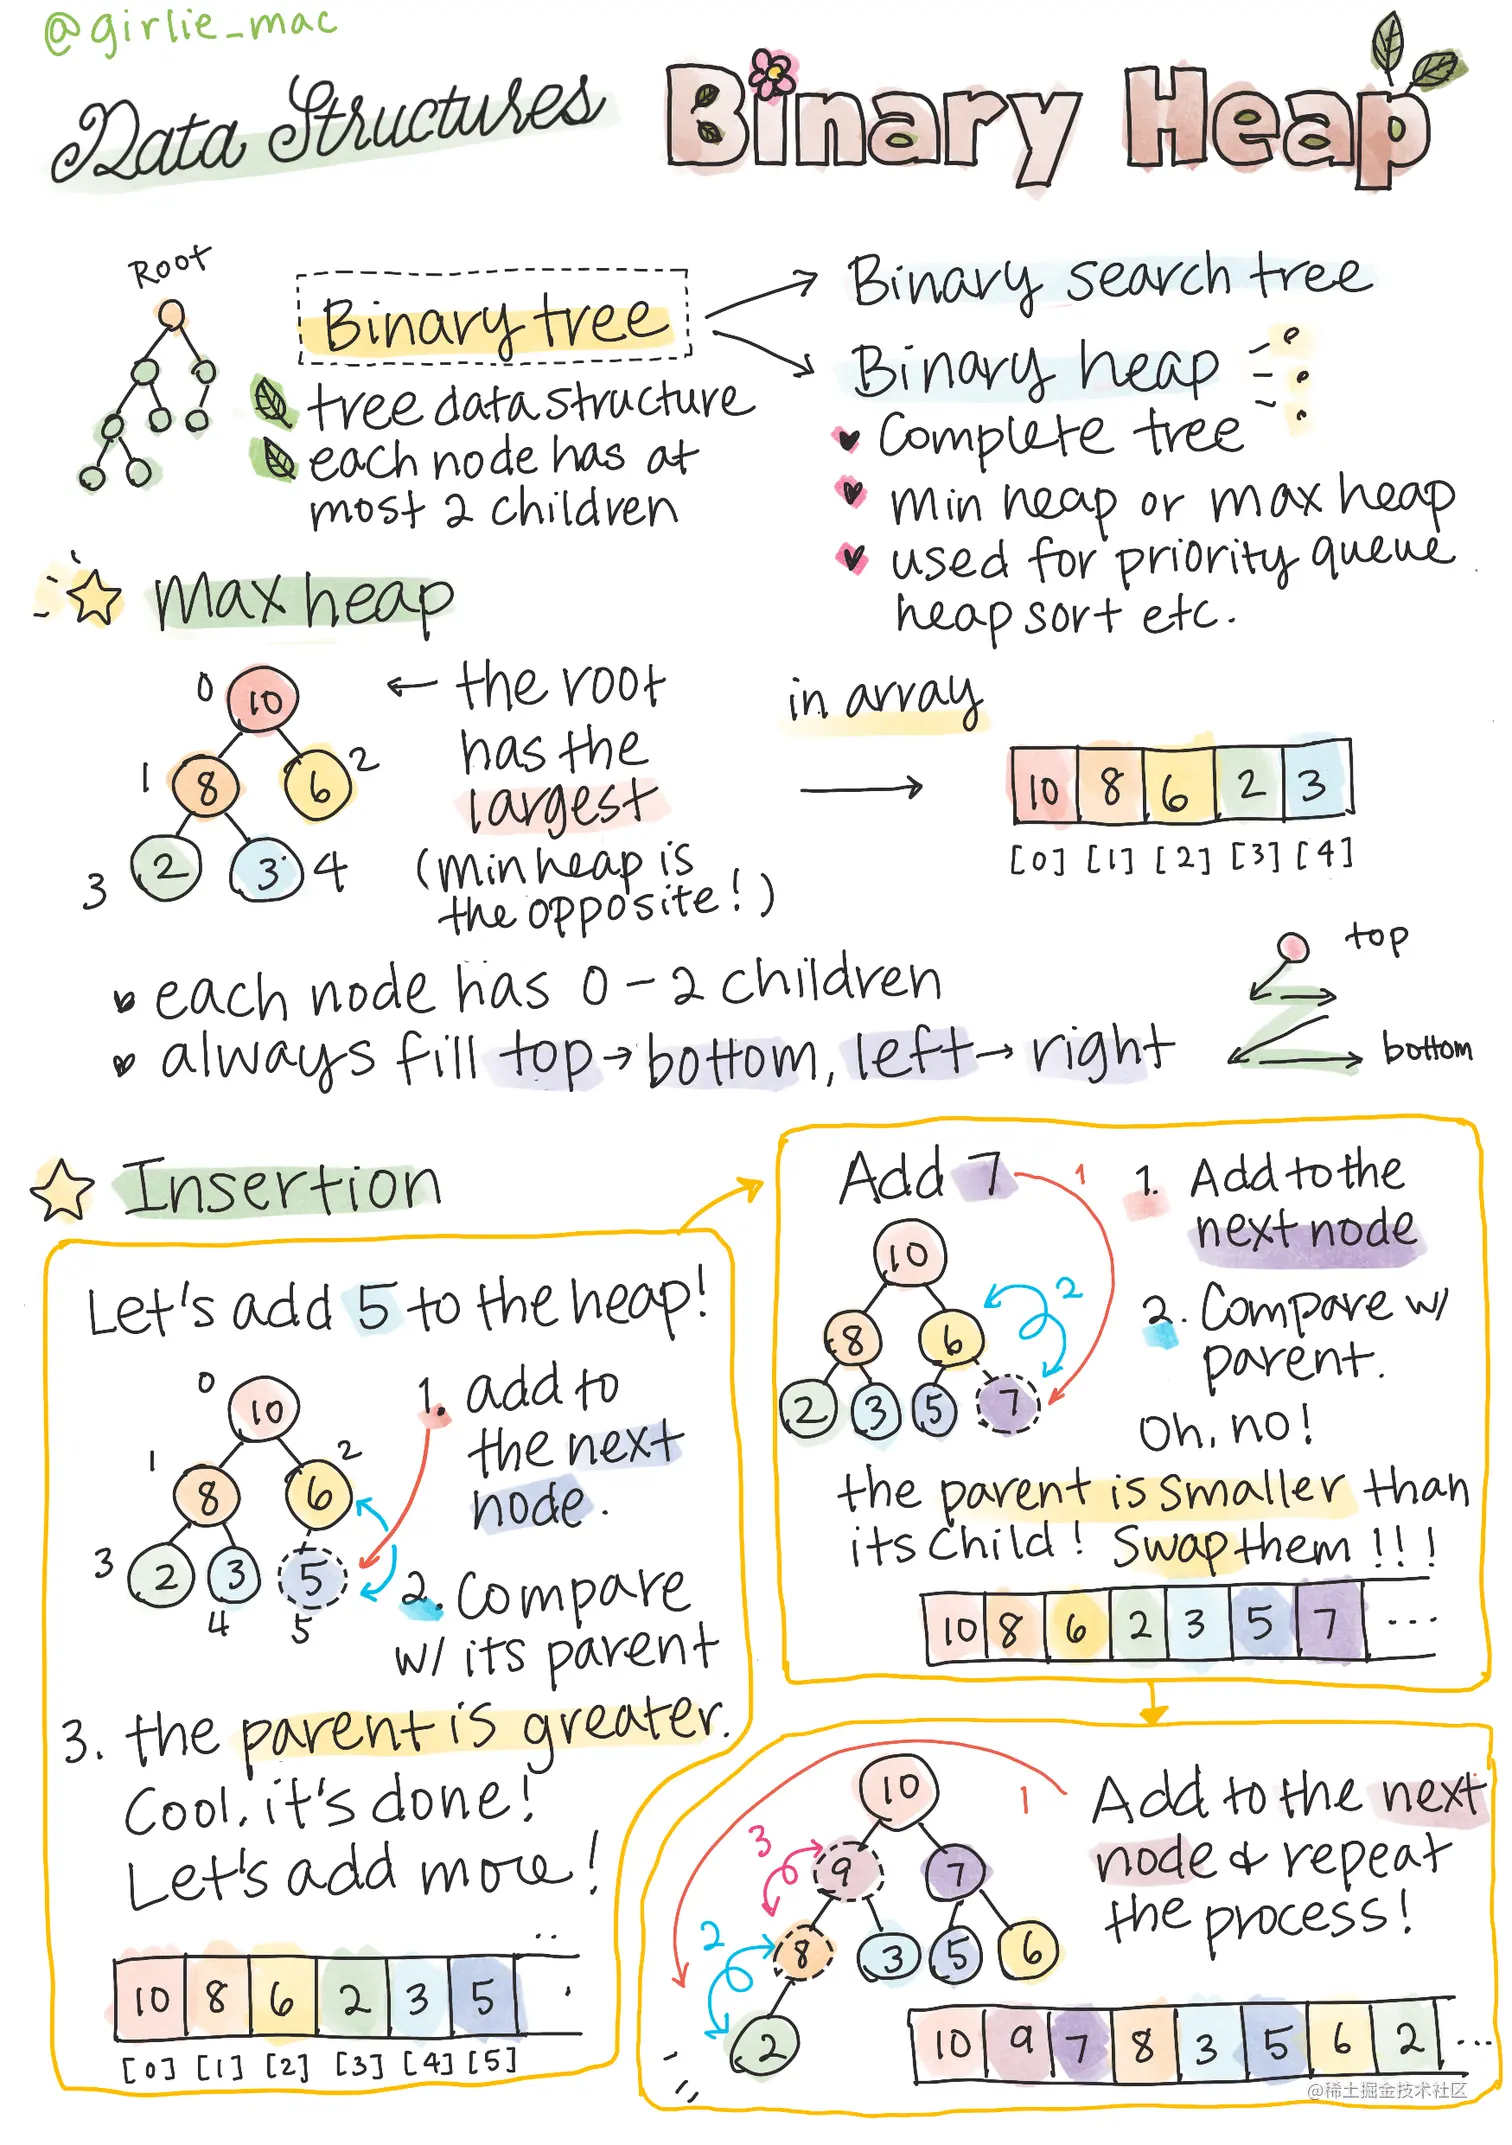 @girlie_mac
Data Structures
Binary Heap
Root
Binary tree
tree data structure
each node has at
most 2 children
Binary search tree
Binary heap
Complete tree
min heap or max heap
used for priority queue
heap sort etc.
Max heap
0
10
1
8
6
2
3
2
3
4
← the root
has the
largest
(Min heap is
the opposite!)
in array
10 8 6 2 3
[0] [1] [2] [3] [4]
each node has 0-2 children
always fill top → bottom, left → right
top
bottom
Insertion
Let's add 5 to the heap!
0
10
1
8
6
2
3
2
3
5
4
5
1. add to
the next
node.
2. Compare
w/ its parent
3. the parent is greater.
Cool, it's done!
Let's add more!
10 8 6 2 3 5
[0] [1] [2] [3] [4] [5]
Add 7
1
10
8
6
2
2
3
5
7
1. Add to the
next node
2. Compare w/
parent.
Oh, no!
the parent is smaller than
its child! Swap them!!!
10 8 6 2 3 5 7 ...
10
1
3
9
7
2
8
3
5
6
2
Add to the next
node & repeat
the process!
10 9 7 8 3 5 6 2 ...
@稀土掘金技术社区